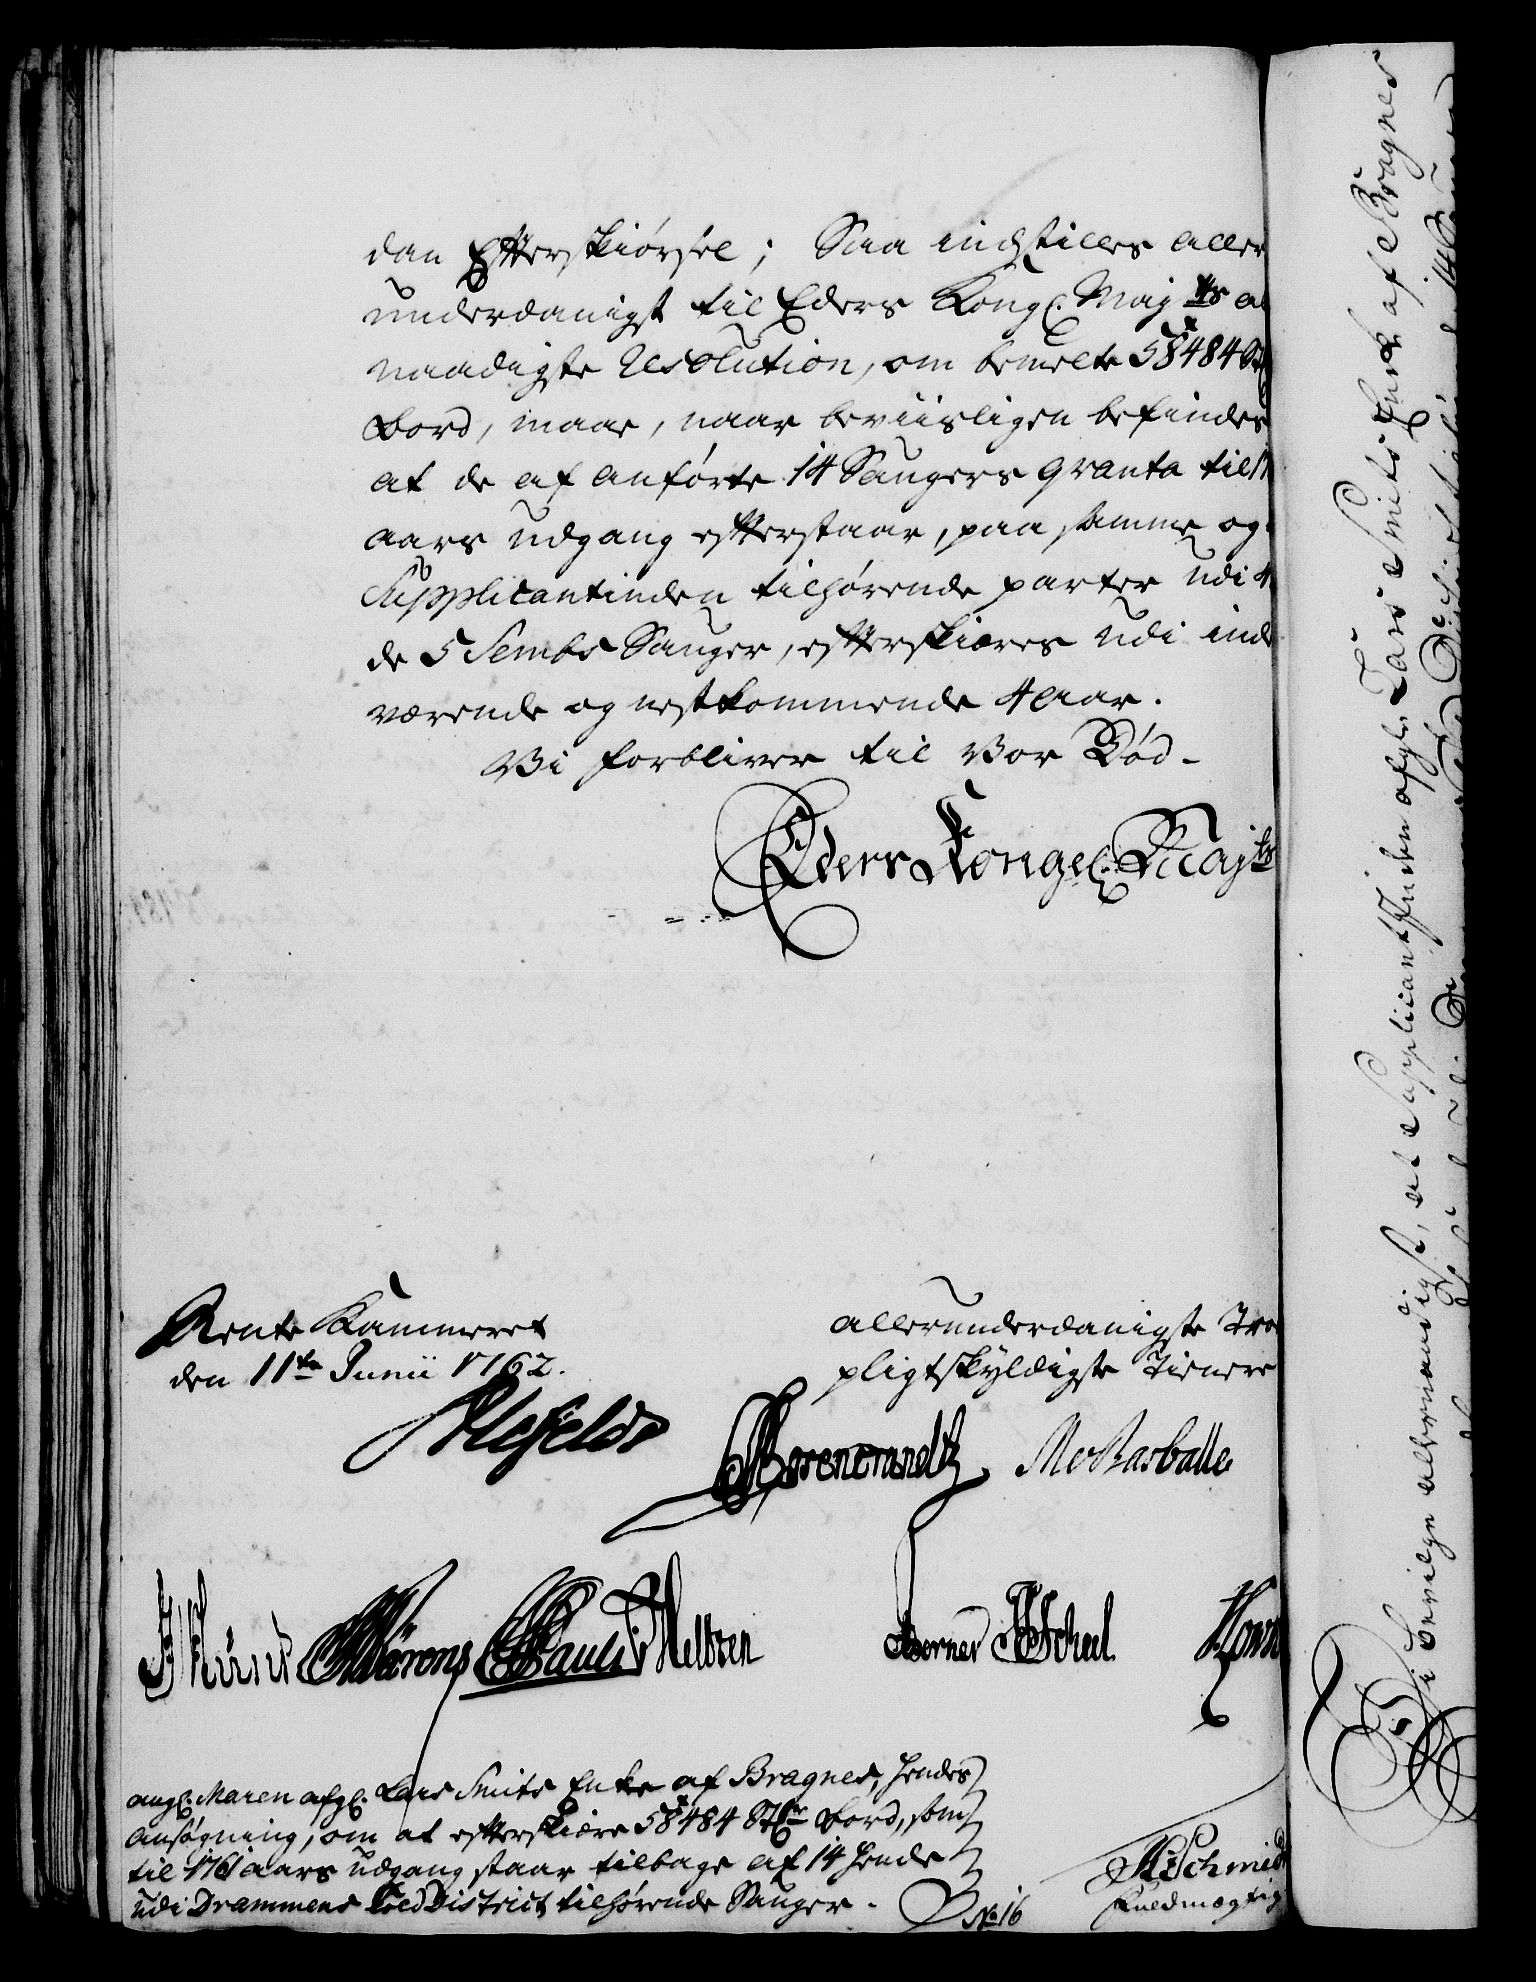 dan Efterskiørsel; Saa indstilles aller
underdanigst til Eders Kongl. Maj.ts al
naadigste Resolution, om bemelte 58484 St.
Bord, maae, naar beviisligen befindes
at de af anførte 14 Saugers qvanta til 17
aars udgang efterstaar, paa samme og
Supplicantinden tilhørende parter udi
de 5 Sembs Sauger, efterskiæres udi ind
værende og nestkommende 4 Aar.
Vi forbliver til Vor Død-
Eders Kongel. Maj.ts
Rente Kammeret
den 11te Junii 1762.
allerunderdanigste Troe
pligtskyldigste Tienere
Ahlefeldt
Rosencrandtz
Barballe
Børens Pauli Heltzen
Berner Scheel
angl. Maren afgl. Lars Smits Enke af Bragnes, hendes
ansøgning, om at efterskiære 58484 St.r Bord, som
til 1761 aars udgang staar tilbage af 14 hende
udi Drammens Foed District tilhørende Sauger.
No 16
Schmidt
Fuldmægtig
Vi bevilge allernaadigst, at Supplicantinden afgl. Lars Smits Enke af Bragnes